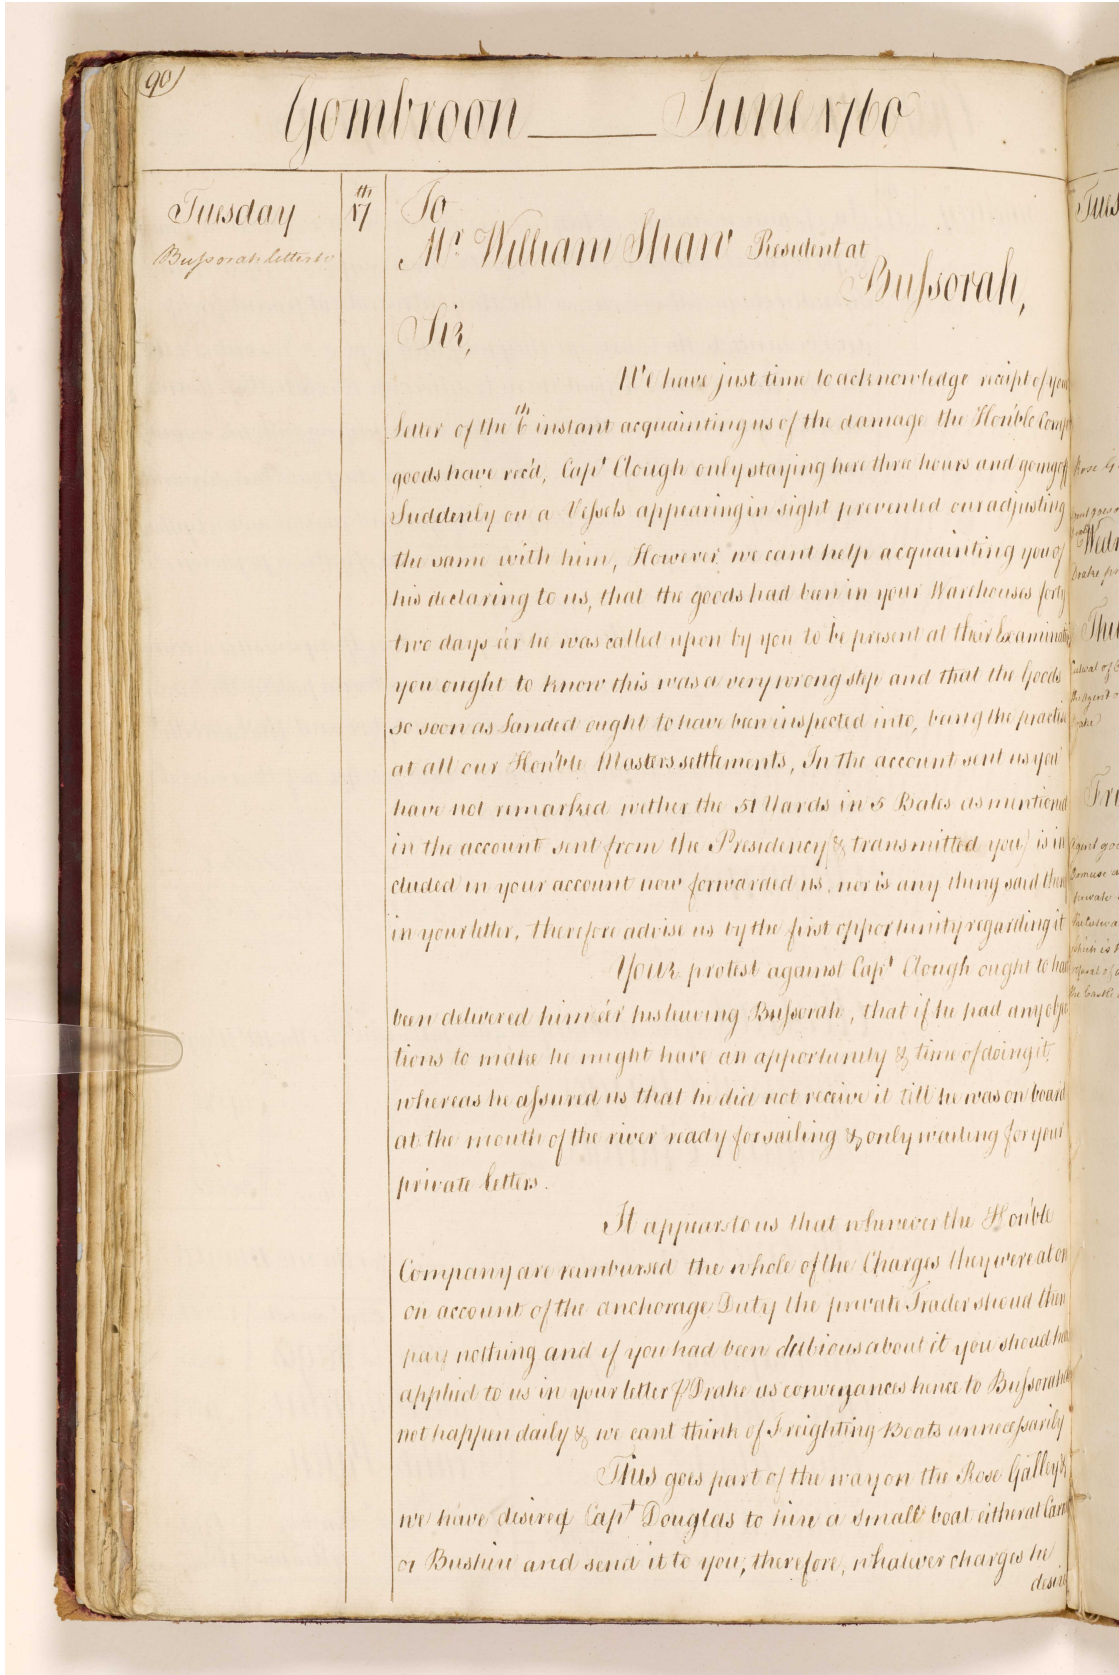 90)
Gombroon June 1760
Tuesday 17th
Bussorah letters to
To
Mr. William Shaw President at
Bussorah,
Sir,
We have just time to acknowledge receipt of your
Letter of the 6th instant acquainting us of the damage the Honble Comps
goods have rec'd, Capt Clough only staying here three hours and going off
Suddenly on a Vessels appearing in sight prevented our adjusting
the same with him, However we cant help acquainting you of
his declaring to us, that the goods had been in your Warehouses forty
two days e'er he was called upon by you to be present at their Examinatio
you ought to know this was a very wrong step and that the Goods
so soon as Landed ought to have been inspected into, being the practise
at all our Honble Masters settlements, In the account sent us you
have not remarked wether the 51 Yards in 5 Bales as mentioned
in the account sent from the Presidency (& transmitted you) is in
cluded in your account now forwarded us, nor is any thing said there
in your letter, therefore advise us by the first opportunity regarding it
Your protest against Capt Clough ought to have
been delivered him e'er his leaving Bussorah, that if he had any objec
tions to make he might have an apportunity & time of doing it,
whereas he assured us that he did not receive it till he was on board
at the mouth of the river ready for sailing & only waiting for your
private letters.
It appears to us that whenever the Honble
Company are reimbursed the whole of the Charges they were at on
on account of the anchorage Duty the private Trader shoud then
pay nothing and if you had been dubious about it you shoud have
applied to us in your letter Drake as conveyances hence to Bussorah do
not happen daily & we cant think of Freighting Boats unnecessarily
This goes part of the way on the Rose Galley &
we have desired Capt Douglas to hire a small boat either at Car
or Bushire and send it to you, therefore, whatever charges he
desir
Tues
Rose G
Wedn
Drake
Thu
Fri
Agent